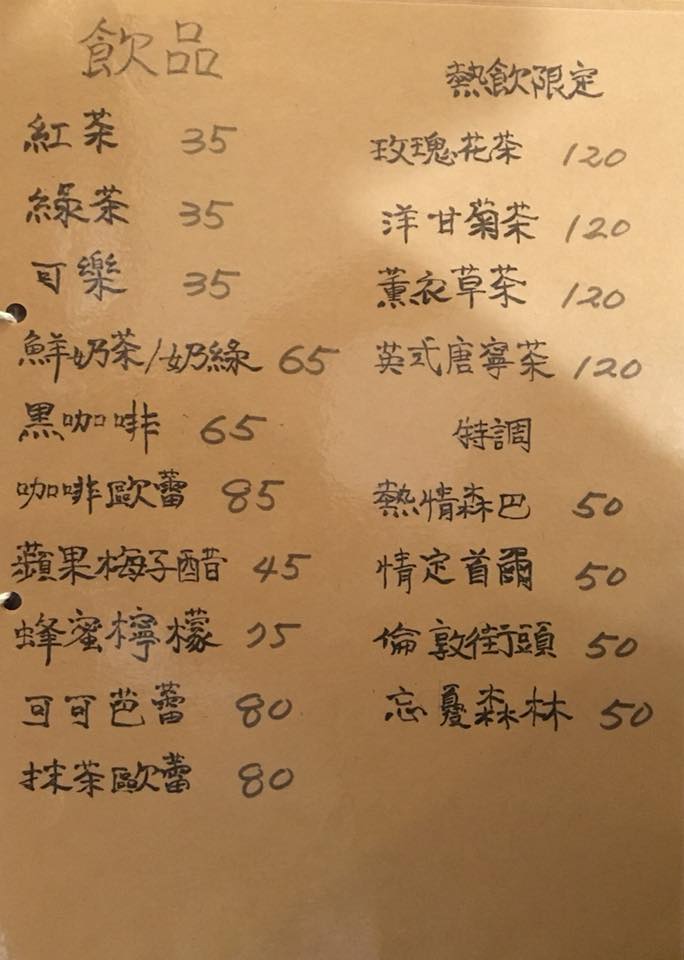 飲品
紅茶 35
綠茶 35
可樂 35
鮮奶茶/奶綠 65
黑咖啡 65
咖啡歐蕾 85
蘋果梅子醋 45
蜂蜜檸檬 75
可可芭蕾 80
抹茶歐蕾 80
熱飲限定
玫瑰花茶 120
洋甘菊茶 120
薰衣草茶 120
英式唐寧茶 120
特調
熱情森巴 50
情定首爾 50
倫敦街頭 50
忘憂森林 50